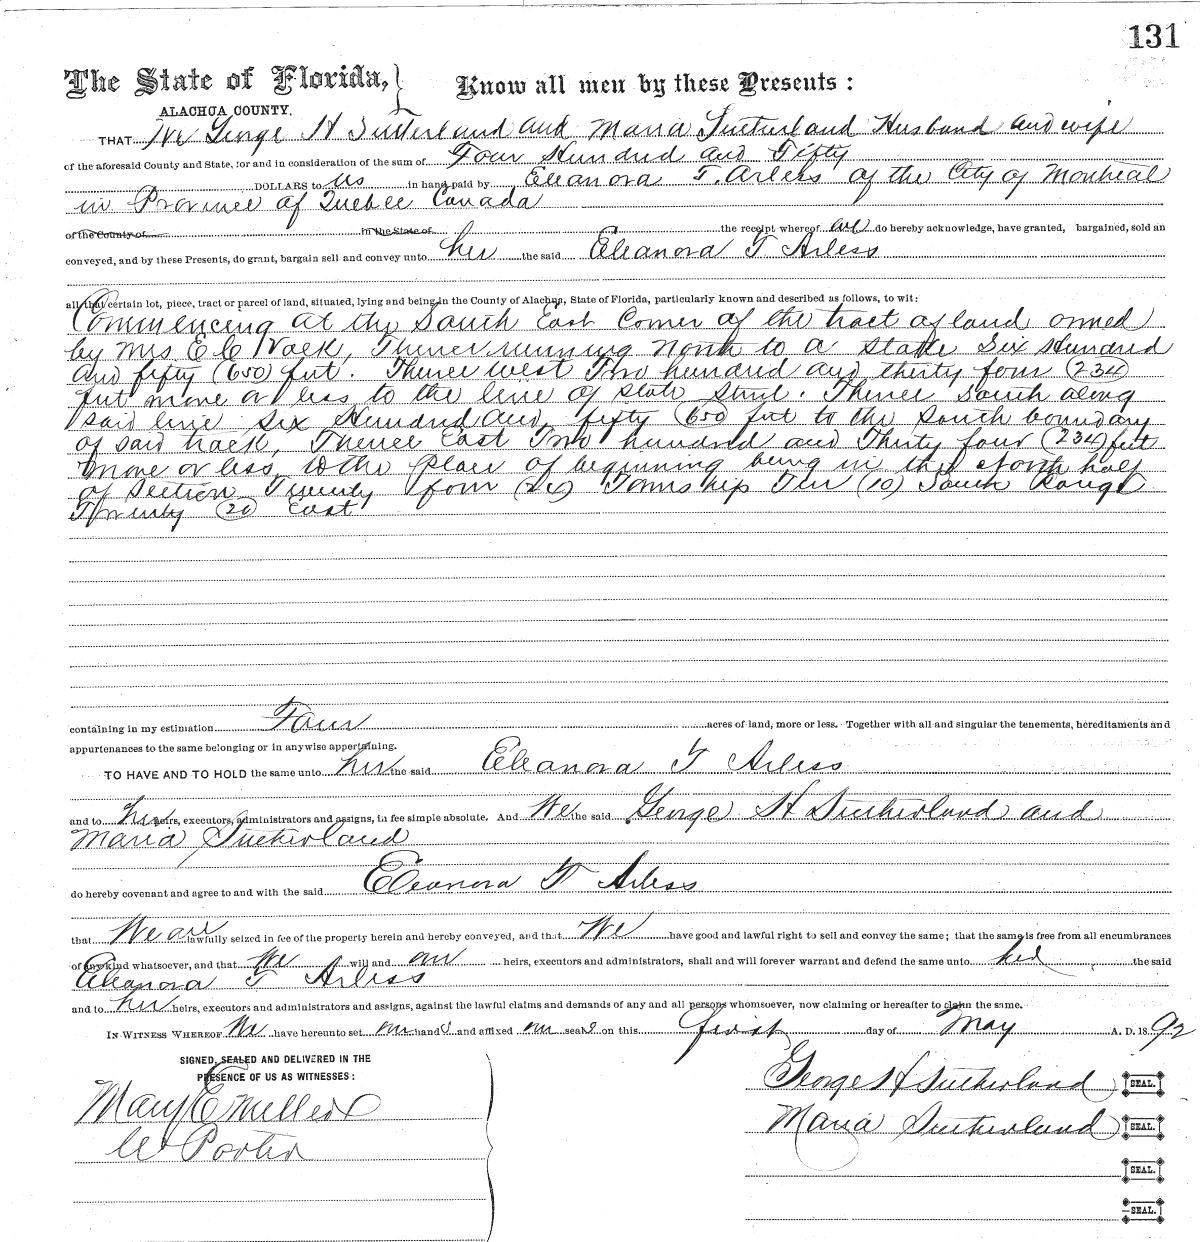 131
The State of Florida, } Know all men by these Presents :
ALACHUA COUNTY.
THAT We George H Sutherland and Maria Sutherland Husband and wife
of the aforesaid County and State, for and in consideration of the sum of Four Hundred and Fifty
DOLLARS to us in hand paid by Eleanora T. Arless of the City of Montreal
in Province of Quebec Canada
of the County of in the State of the receipt whereof are do hereby acknowledge, have granted, bargained, sold an
conveyed, and by these Presents, do grant, bargain sell and convey unto her the said Eleanora T Arless
all that certain lot, piece, tract or parcel of land, situated, lying and being in the County of Alachua, State of Florida, particularly known and described as follows, to wit:
Commencing at the South East Corner of the tract of land owned
by Mrs E C Thence running North to a stake Six Hundred
and fifty (650) feet. Thence west Two hundred and thirty four (234)
feet more or less to the line of State Street. Thence South along
said line Six Hundred and fifty (650) feet to the South boundary
of said track, Thence East Two hundred and Thirty four (234) feet
more or less to the place of beginning being in the North half
of Section Twenty four (24) Township Ten (10) South Range
Twenty (20) East
containing in my estimation Four acres of land, more or less. Together with all and singular the tenements, hereditaments and
appurtenances to the same belonging or in anywise appertaining.
TO HAVE AND TO HOLD the same unto her the said Eleanora T Arless
and to her heirs, executors, administrators and assigns, in fee simple absolute. And We the said George H Sutherland and
Maria Sutherland
do hereby covenant and agree to and with the said Eleanora T Arless
that We are lawfully seized in fee of the property herein and hereby conveyed, and that We have good and lawful right to sell and convey the same; that the same is free from all encumbrances
of any kind whatsoever, and that We will and our heirs, executors and administrators, shall and will forever warrant and defend the same unto her the said
Eleanora T Arless
and to her heirs, executors and administrators and assigns, against the lawful claims and demands of any and all persons whomsoever, now claiming or hereafter to claim the same.
IN WITNESS WHEREOF We have hereunto set our hands and affixed our seals on this first day of May A. D. 1892
SIGNED, SEALED AND DELIVERED IN THE
PRESENCE OF US AS WITNESSES:
Mary E Miller
Porter
George H Sutherland SEAL.
Maria Sutherland SEAL.
SEAL.
SEAL.